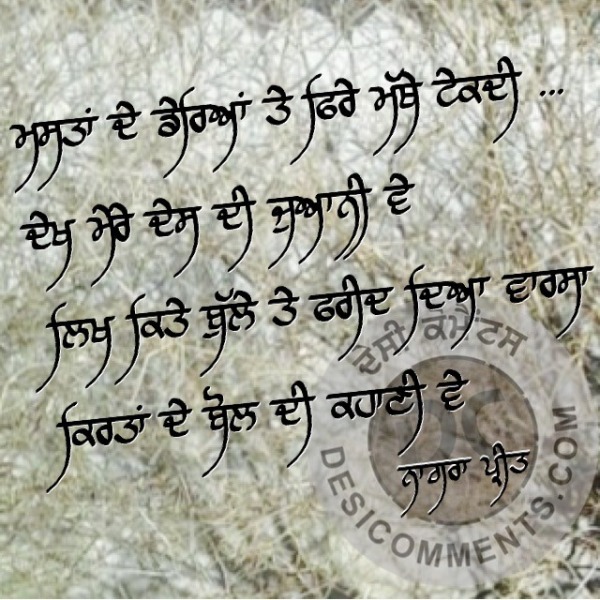 ਮਸਤਾਂ ਦੇ ਡੇਰਿਆਂ ਤੇ ਫਿਰੇ ਮੱਥੇ ਟੇਕਦੀ ...
ਦੇਖ ਮੇਰੇ ਦੇਸ ਦੀ ਜੁਆਨੀ ਵੇ
ਲਿਖ ਕਿਤੇ ਬੁੱਲੇ ਤੇ ਫਰੀਦ ਦਿਆ ਵਾਰਸਾ
ਕਿਰਤਾਂ ਦੇ ਬੋਲ ਦੀ ਕਹਾਣੀ ਵੇ
ਨਾਗਰਾ ਪ੍ਰੀਤ
ਦੇਸੀ ਕਮੈਂਟਸ
DC
DESICOMMENTS.COM